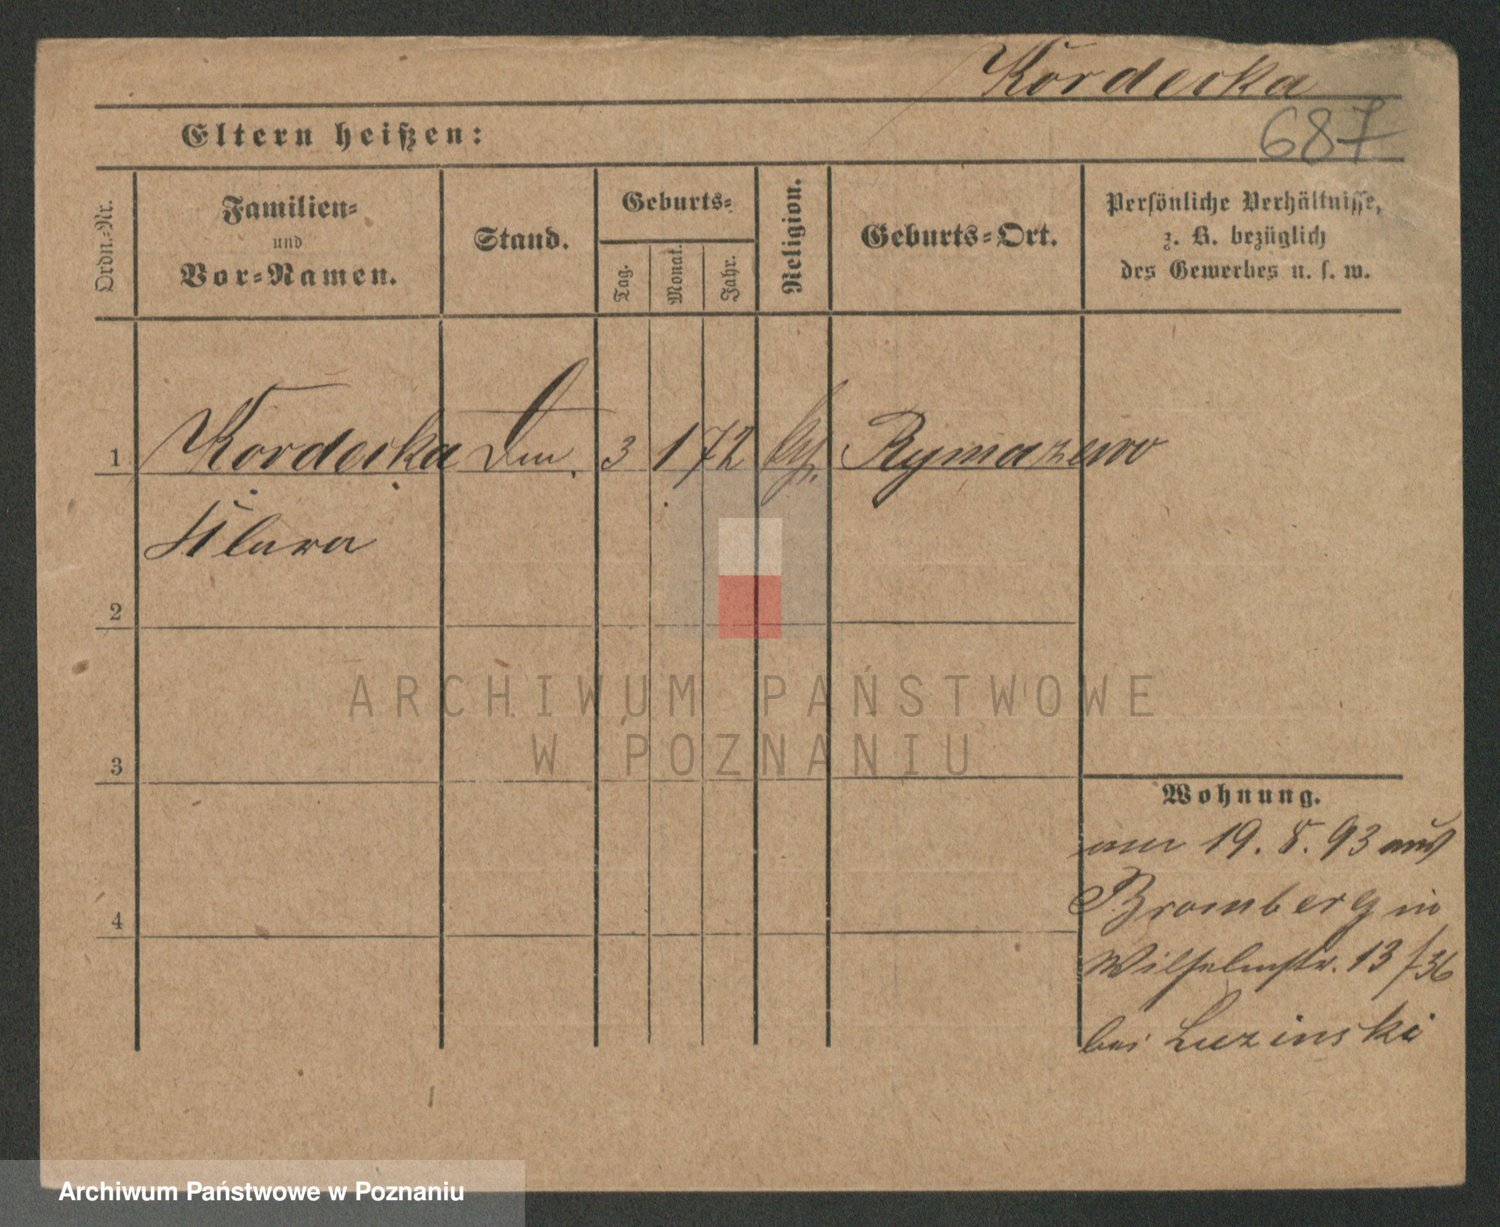 Kordecka
687
Eltern heißen:
Ordn.-Nr.
Familien-
und
Vor-Namen.
Stand.
Geburts-
Tag.
Monat.
Jahr.
Religion.
Geburts-Ort.
Persönliche Verhältnisse,
z. B. bezüglich
des Gewerbes u. s. w.
1 Kordecka 3 1 72
Klara
2
3
4
ARCHIWUM PAŃSTWOWE
W POZNANIU
Wohnung.
am 19. 8. 93 aus
Bromberg in
Wilhelmstr. 13/36
bei Luzinski
Archiwum Państwowe w Poznaniu